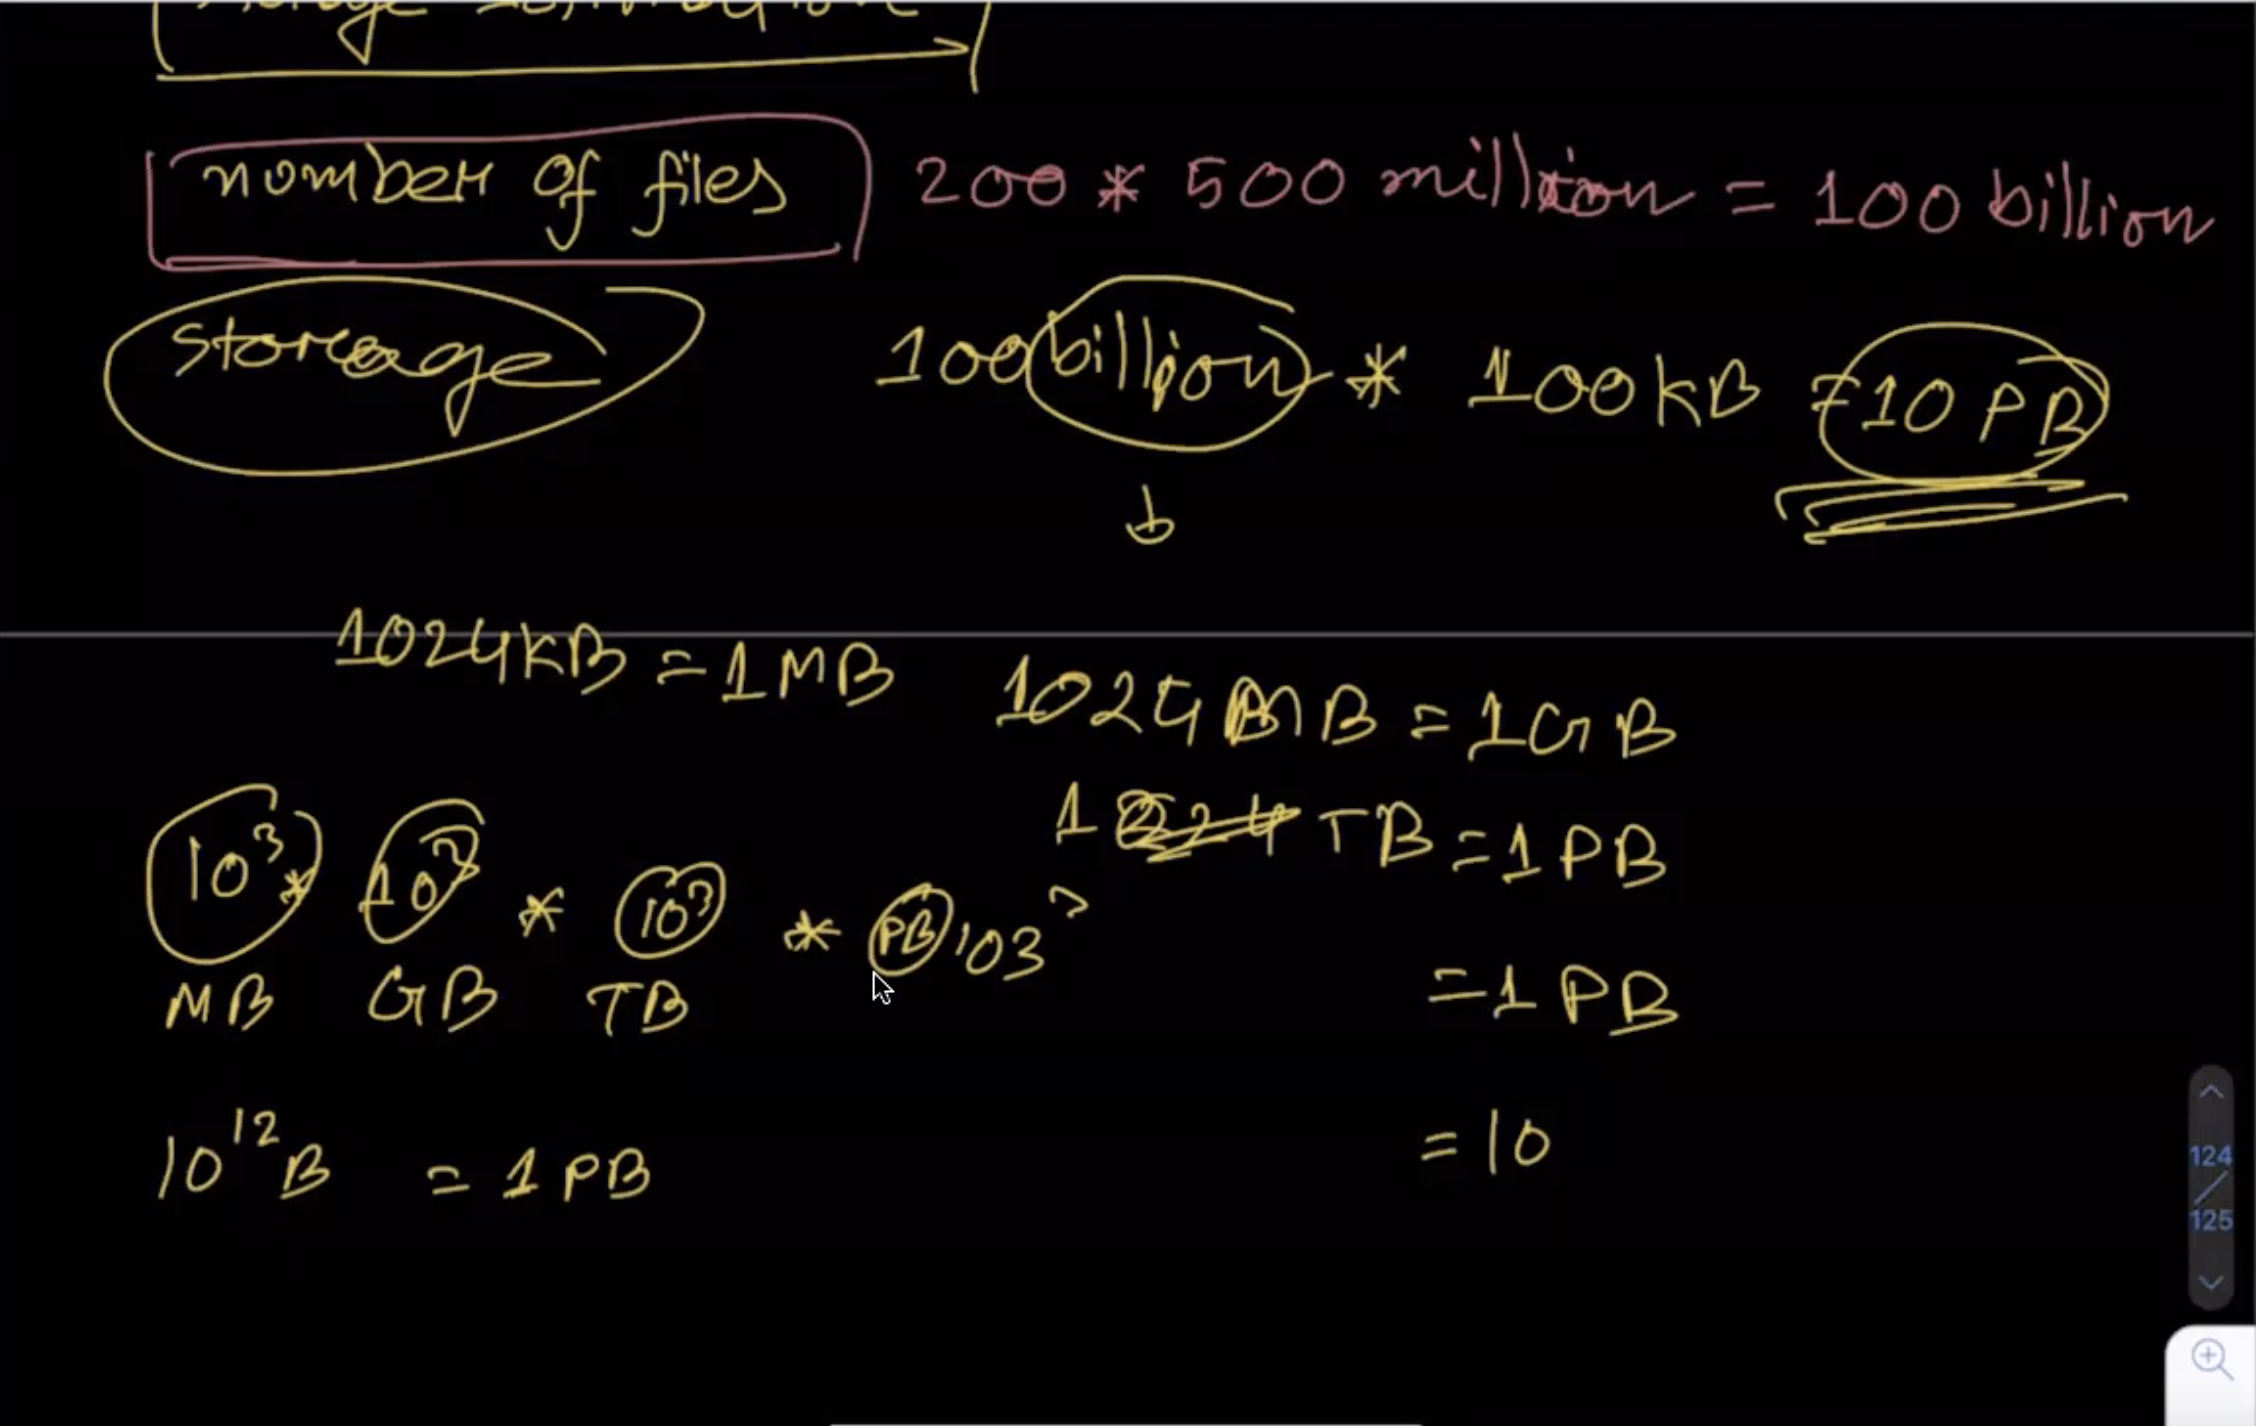 number of files 200 * 500 million = 100 billion
storage 100 billion * 100KB = 10 PB
1024KB = 1MB 1024 MB = 1GB
1024 TB = 1PB
10³ * 10³ * 10³ * PB 103
MB GB TB
= 1 PB
10¹²B = 1 PB
= 10
124
/
125